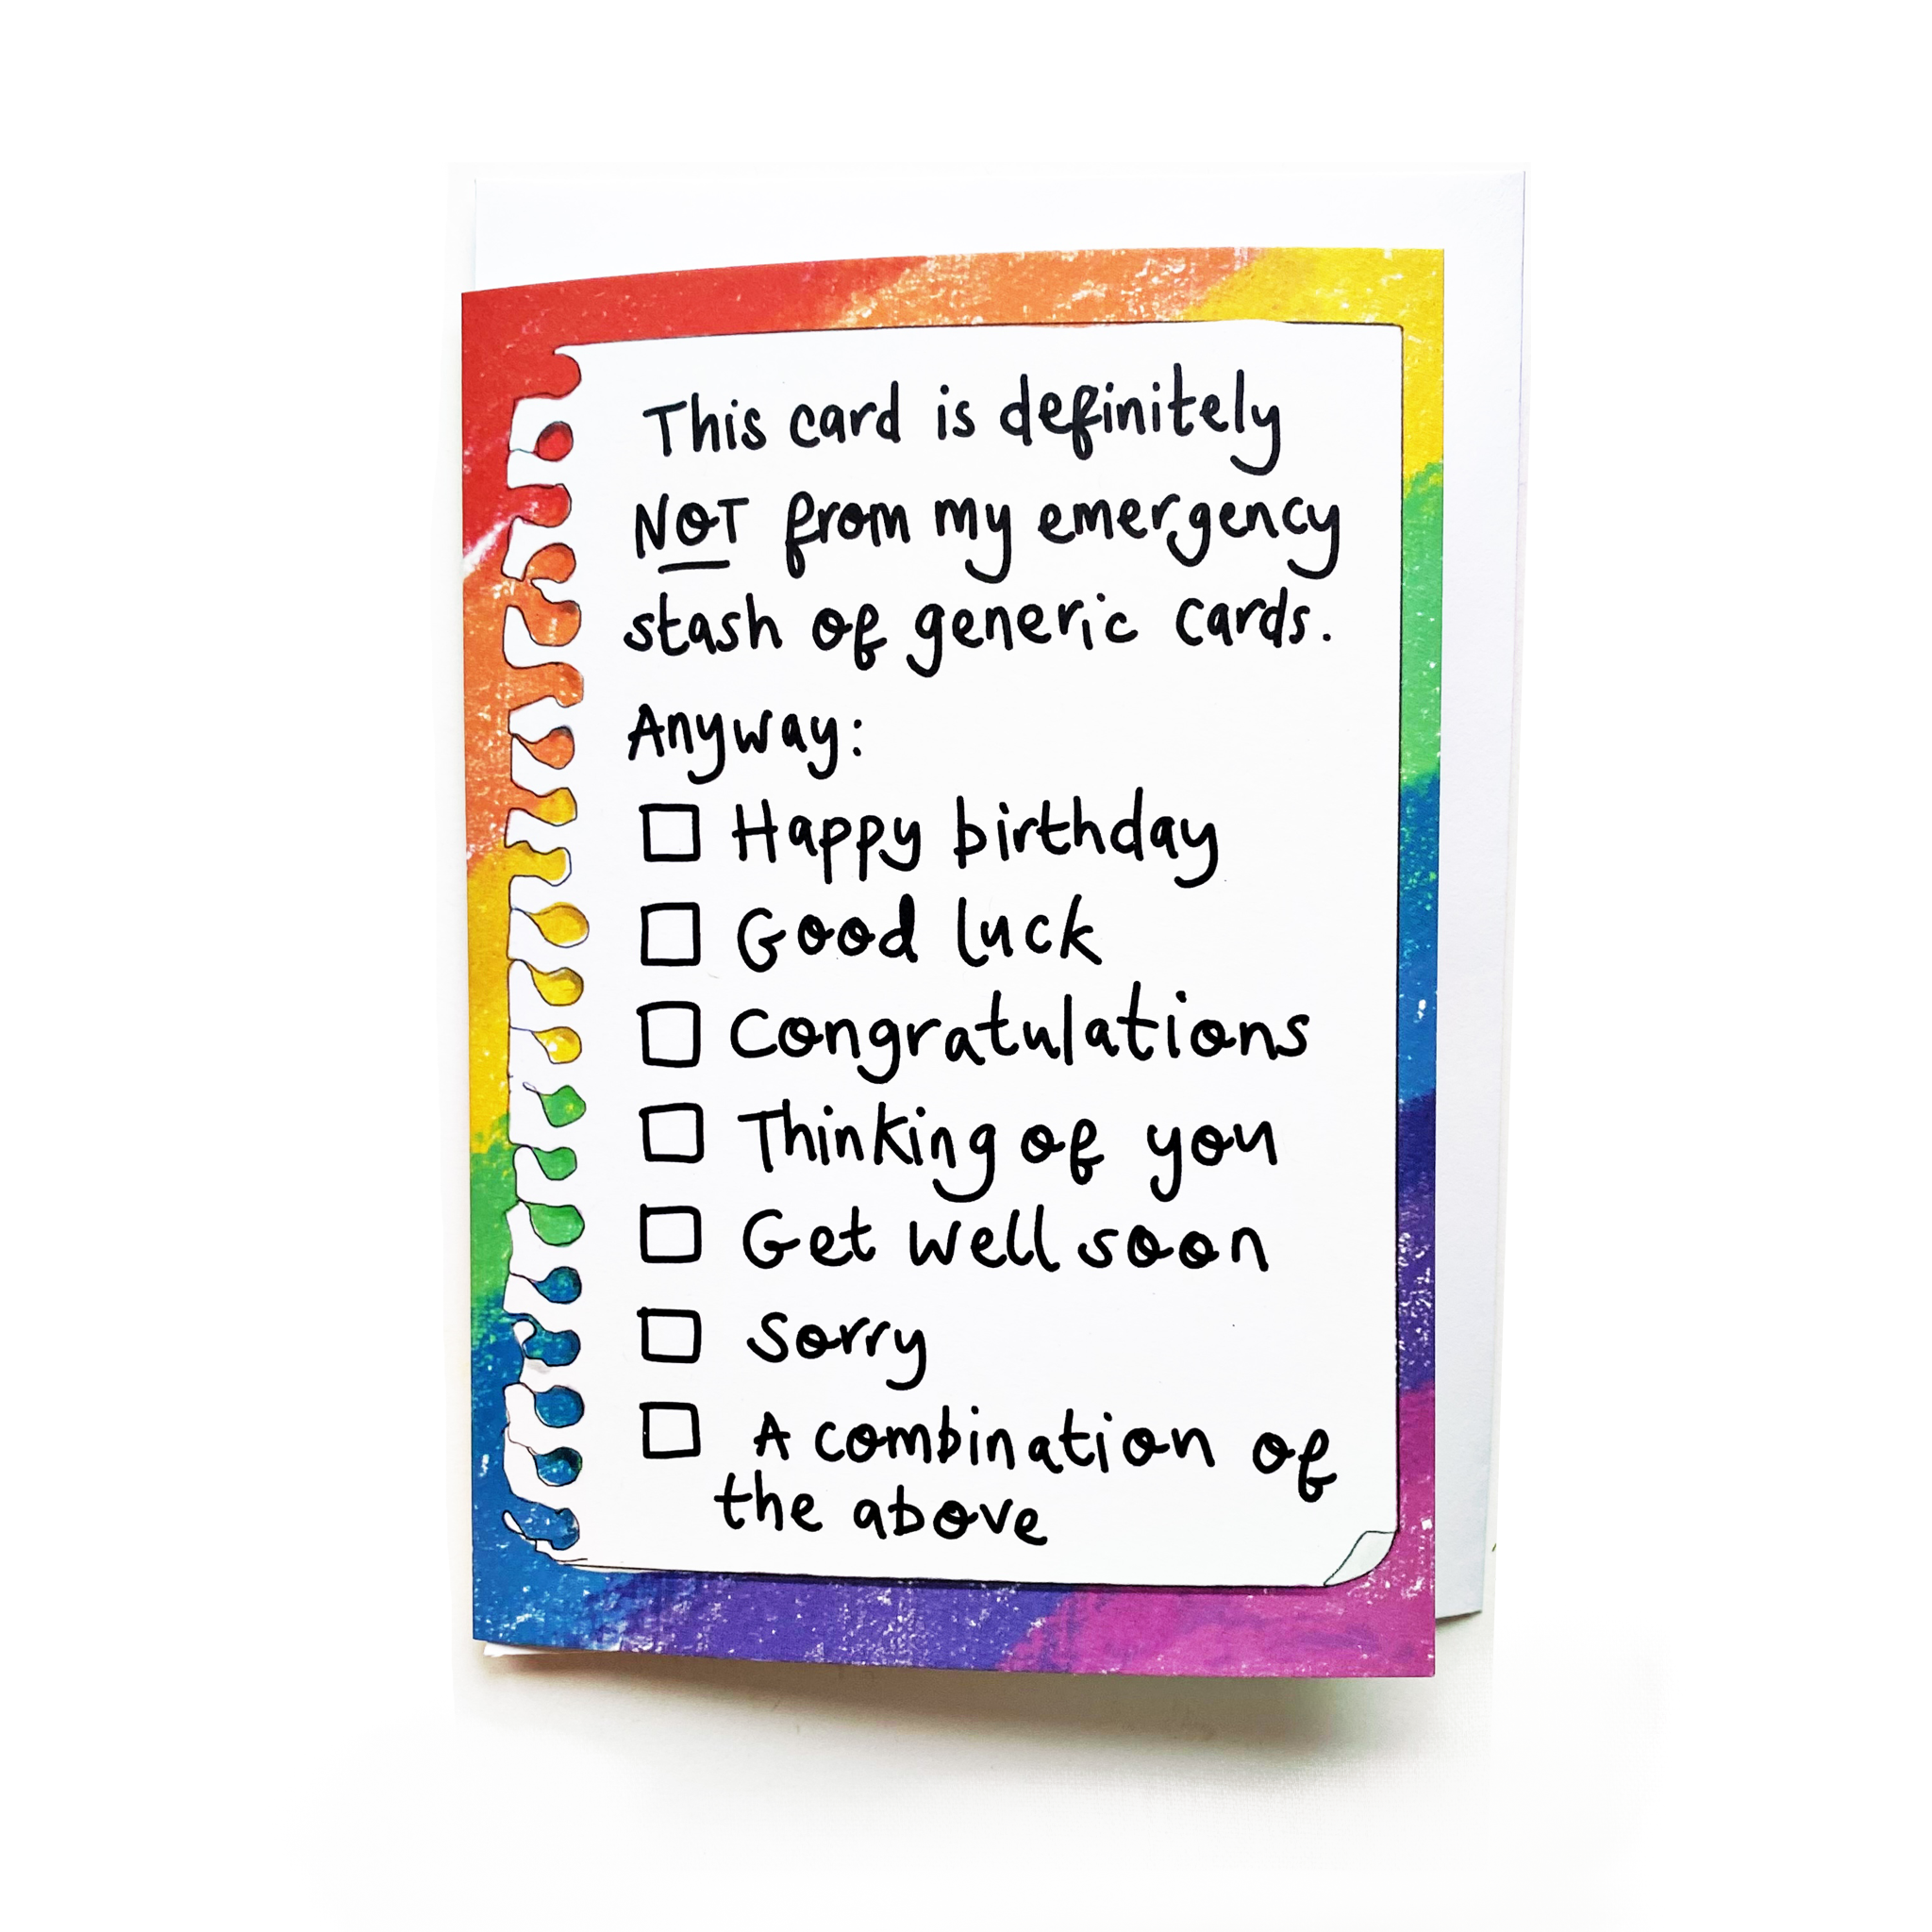 This card is definitely
NOT from my emergency
stash of generic cards.
Anyway:
Happy birthday
Good luck
Congratulations
Thinking of you
Get well soon
Sorry
A combination of
the above